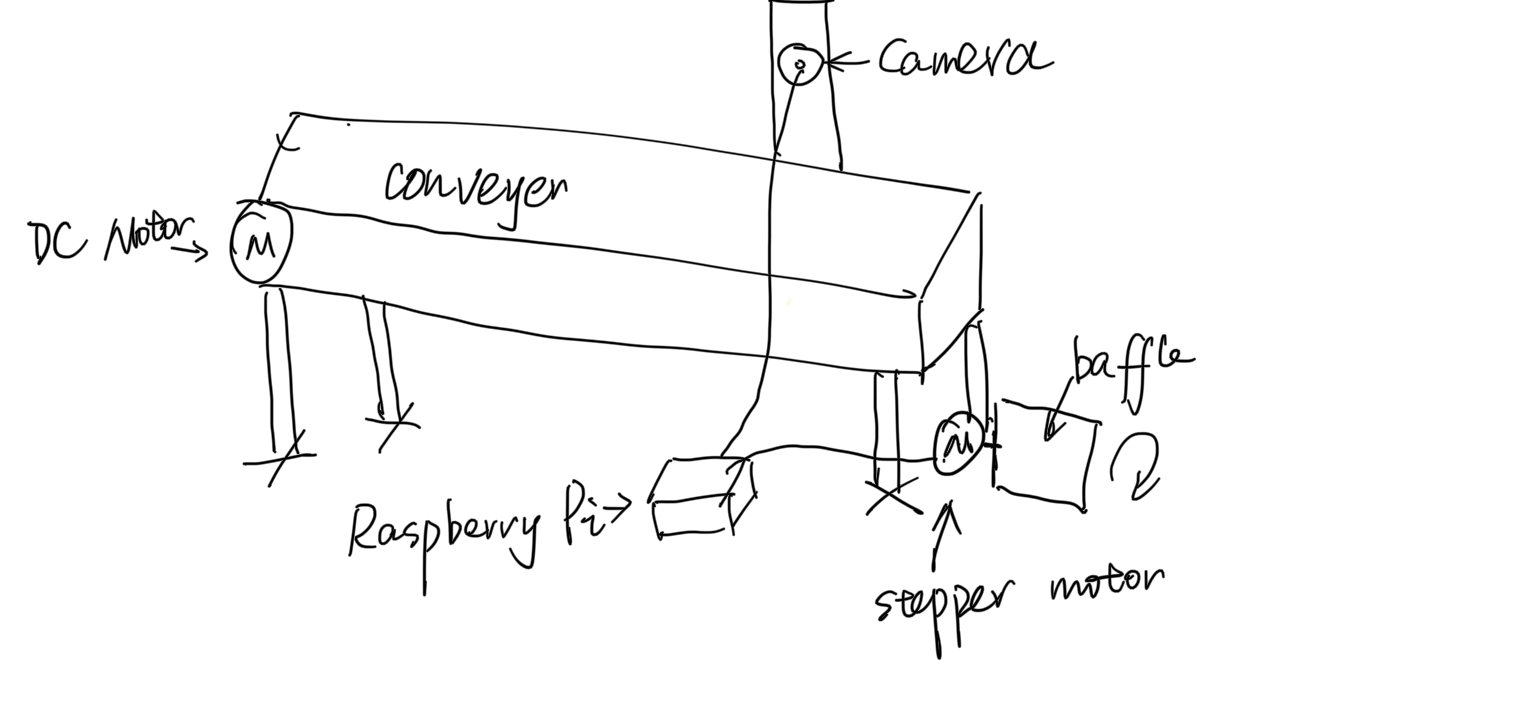 Camera
conveyer
DC Motor
M
baffle
M
Raspberry Pi
stepper motor